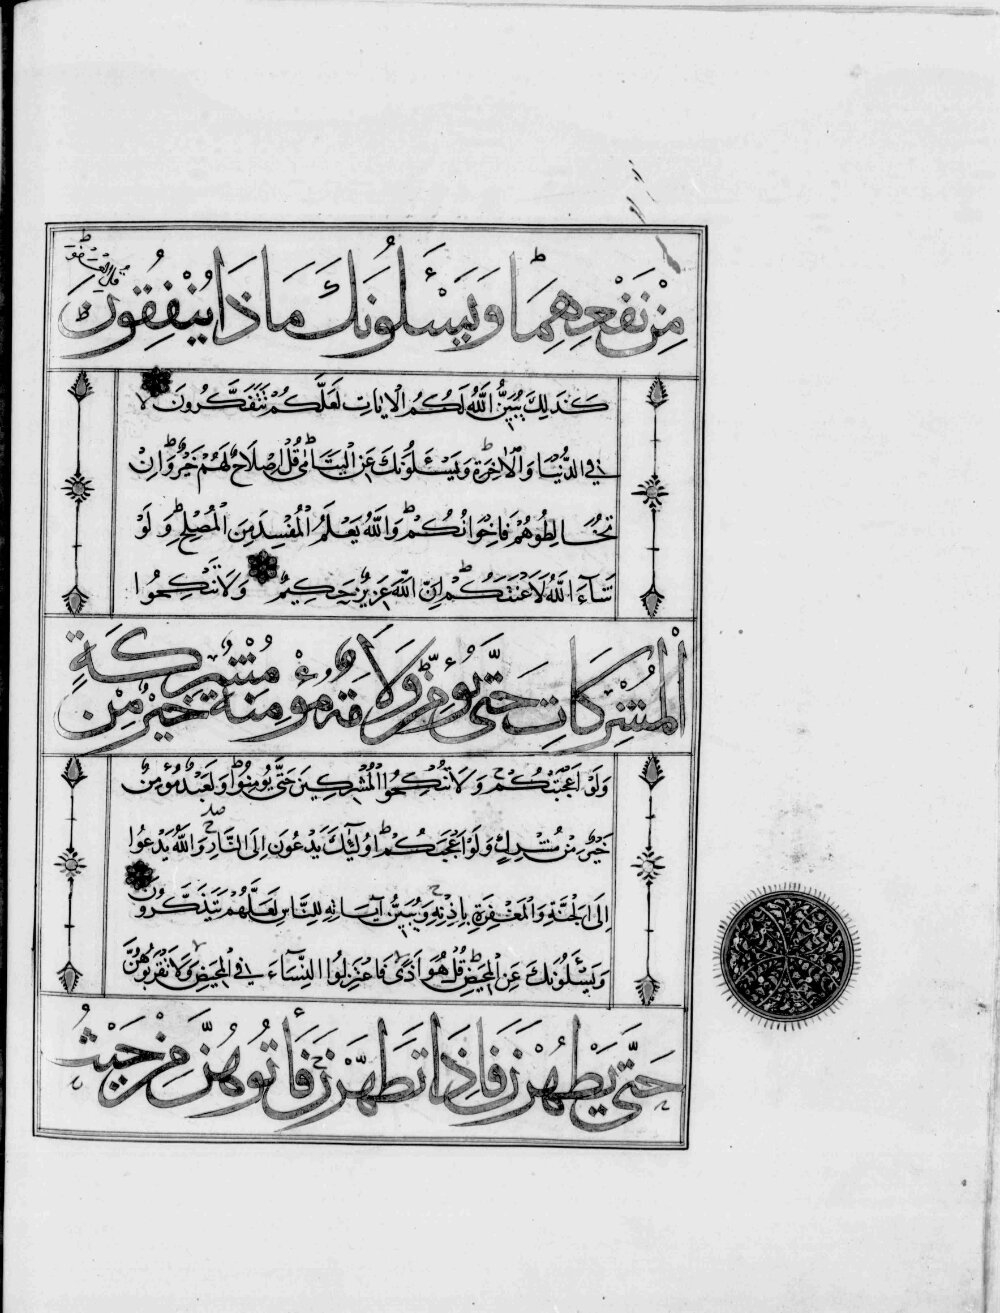 مِنْ نَفْعِهِمَا وَيَسْـَٔلُونَكَ مَاذَا يُنْفِقُونَ
قُلِ الْعَفْوَ
كَذَلِكَ يُبَيِّنُ اللَّهُ لَكُمُ الْايَاتِ لَعَلَّكُمْ تَتَفَكَّرُونَ
فِي الدُّنْيَا وَالْاخِرَةِ وَيَسْـَٔلُونَكَ عَنِ الْيَتَامٰى قُلْ اِصْلَاحٌ لَهُمْ خَيْرٌ وَاِنْ
تُخَالِطُوهُمْ فَاِخْوَانُكُمْ وَاللَّهُ يَعْلَمُ الْمُفْسِدَ مِنَ الْمُصْلِحِ وَلَوْ
شَآءَ اللَّهُ لَاَعْنَتَكُمْ اِنَّ اللَّهَ عَزِيزٌ حَكِيمٌ وَلَا تَنْكِحُوا
الْمُشْرِكَاتِ حَتَّى يُؤْمِنَّ وَلَاَمَةٌ مُؤْمِنَةٌ خَيْرٌ مِنْ مُشْرِكَةٍ
وَلَوْ اَعْجَبَتْكُمْ وَلَا تُنْكِحُوا الْمُشْرِكِينَ حَتَّى يُؤْمِنُوا وَلَعَبْدٌ مُؤْمِنٌ
خَيْرٌ مِنْ مُشْرِكٍ وَلَوْ اَعْجَبَكُمْ اُولَٰٓئِكَ يَدْعُونَ اِلَى النَّارِ وَاللَّهُ يَدْعُوا
اِلَى الْجَنَّةِ وَالْمَغْفِرَةِ بِاِذْنِهِ وَيُبَيِّنُ آيَاتِهِ لِلنَّاسِ لَعَلَّهُمْ يَتَذَكَّرُونَ
وَيَسْـَٔلُونَكَ عَنِ الْمَحِيضِ قُلْ هُوَ اَذًى فَاعْتَزِلُوا النِّسَآءَ فِي الْمَحِيضِ وَلَا تَقْرَبُوهُنَّ
حَتَّى يَطْهُرْنَ فَاِذَا تَطَهَّرْنَ فَأْتُوهُنَّ مِنْ حَيْثُ